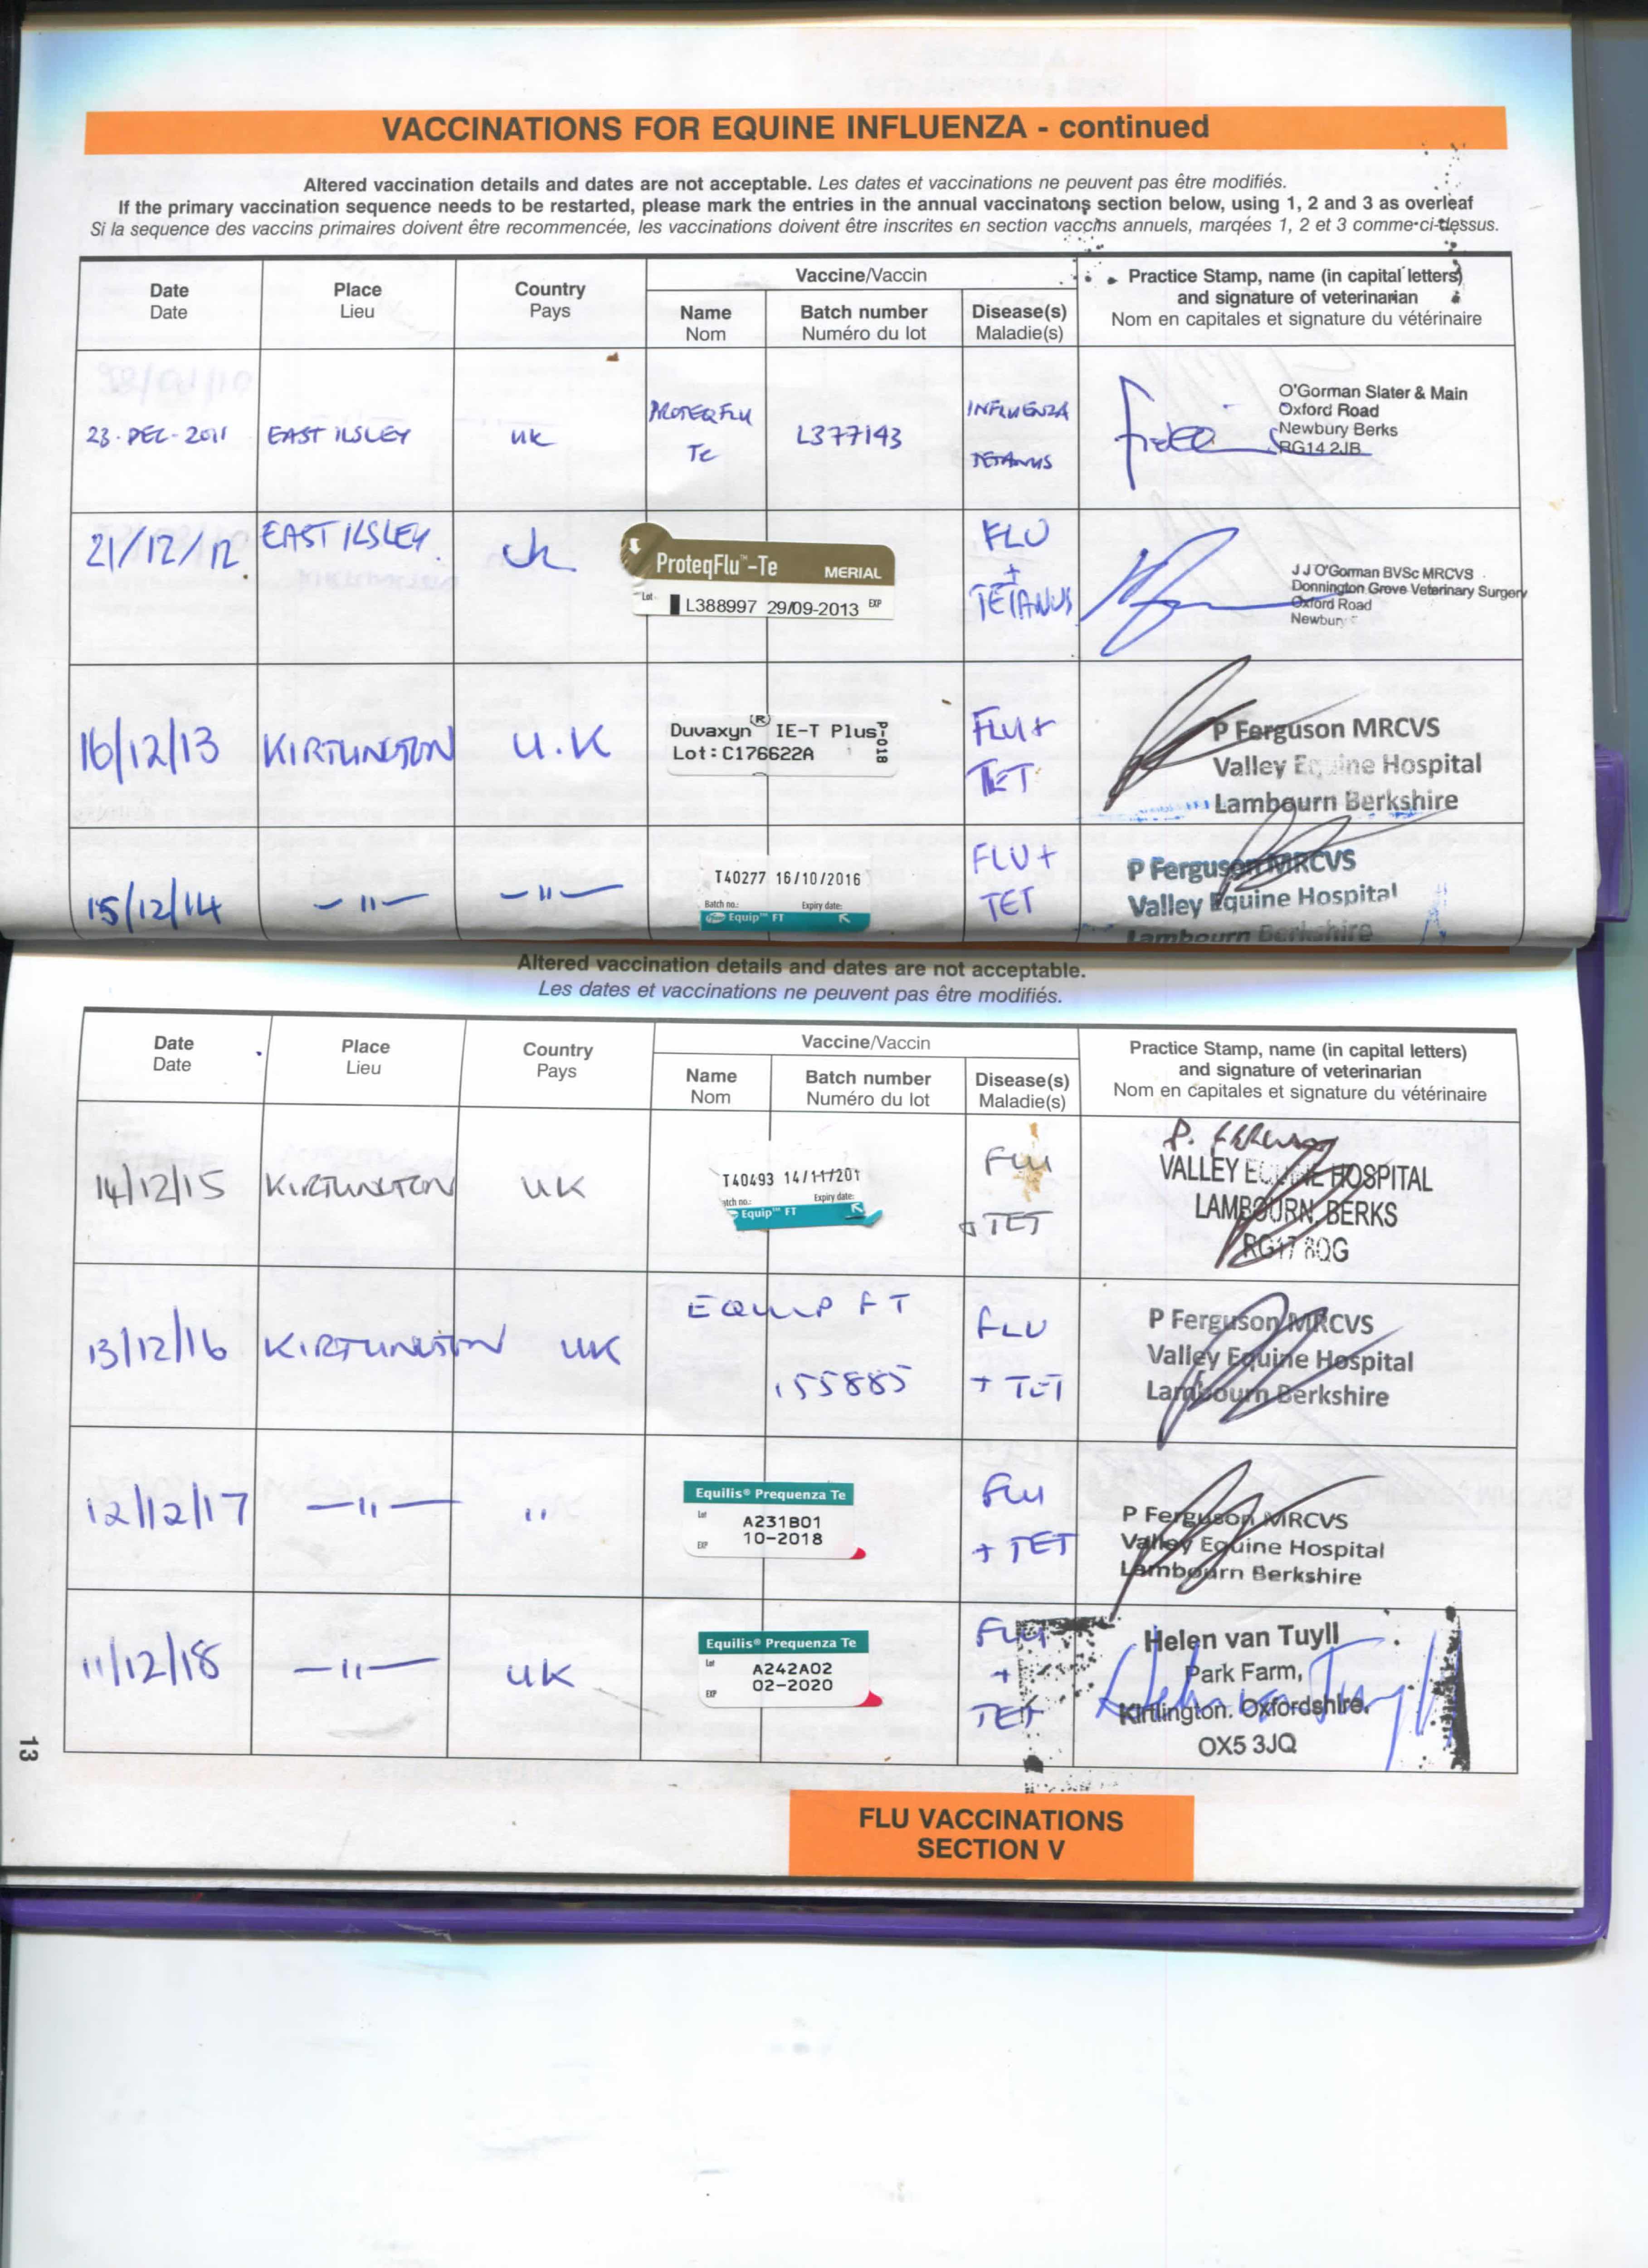 VACCINATIONS FOR EQUINE INFLUENZA - continued
Altered vaccination details and dates are not acceptable. Les dates et vaccinations ne peuvent pas être modifiés.
If the primary vaccination sequence needs to be restarted, please mark the entries in the annual vaccinatons section below, using 1, 2 and 3 as overleaf
Si la sequence des vaccins primaires doivent être recommencée, les vaccinations doivent être inscrites en section vaccins annuels, marqées 1, 2 et 3 comme-ci-dessus.
Date Place Country Vaccine/Vaccin Practice Stamp, name (in capital letters)
Date Lieu Pays Name Batch number Disease(s) and signature of veterinarian
Nom Numéro du lot Maladie(s) Nom en capitales et signature du vétérinaire
23-DEC-2011 EAST ILSLEY UK PROTEQFLU L377143 INFLUENZA O'Gorman Slater & Main
Te TETANUS Oxford Road
Newbury Berks
RG14 2JB
21/12/12 EAST ILSLEY. UK ProteqFlu™-Te MERIAL FLU J J O'Gorman BVSc MRCVS
Lot L388997 29/09-2013 EXP + Donnington Grove Veterinary Surgery
TETANUS Oxford Road
Newbury
16/12/13 KIRTLINGTON U.K Duvaxyn(R) IE-T Plus FLU+ P Ferguson MRCVS
Lot:C176622A P-018 TET Valley Equine Hospital
Lambourn Berkshire
15/12/14 -"- -"- T40277 16/10/2016 FLU+ P Ferguson MRCVS
Batch no.: Expiry date: TET Valley Equine Hospital
Equip™ FT Lambourn Berkshire
Altered vaccination details and dates are not acceptable.
Les dates et vaccinations ne peuvent pas être modifiés.
Date Place Country Vaccine/Vaccin Practice Stamp, name (in capital letters)
Date Lieu Pays Name Batch number Disease(s) and signature of veterinarian
Nom Numéro du lot Maladie(s) Nom en capitales et signature du vétérinaire
14/12/15 KIRTLINGTON UK T40493 14/11/201 FLU P. FERGUSON
atch no.: Expiry date: + TET VALLEY EQUINE HOSPITAL
Equip™ FT LAMBOURN, BERKS
RG17 8QG
13/12/16 KIRTLINGTON UK EQUIP FT FLU P Ferguson MRCVS
155885 + TET Valley Equine Hospital
Lambourn Berkshire
12/12/17 -"- " Equilis® Prequenza Te FLU P Ferguson MRCVS
Lot A231B01 + TET Valley Equine Hospital
EXP 10-2018 Lambourn Berkshire
11/12/18 -"- UK Equilis® Prequenza Te FLU Helen van Tuyll
Lot A242A02 + Park Farm,
EXP 02-2020 TET Kirtlington. Oxfordshire.
OX5 3JQ
13
FLU VACCINATIONS
SECTION V